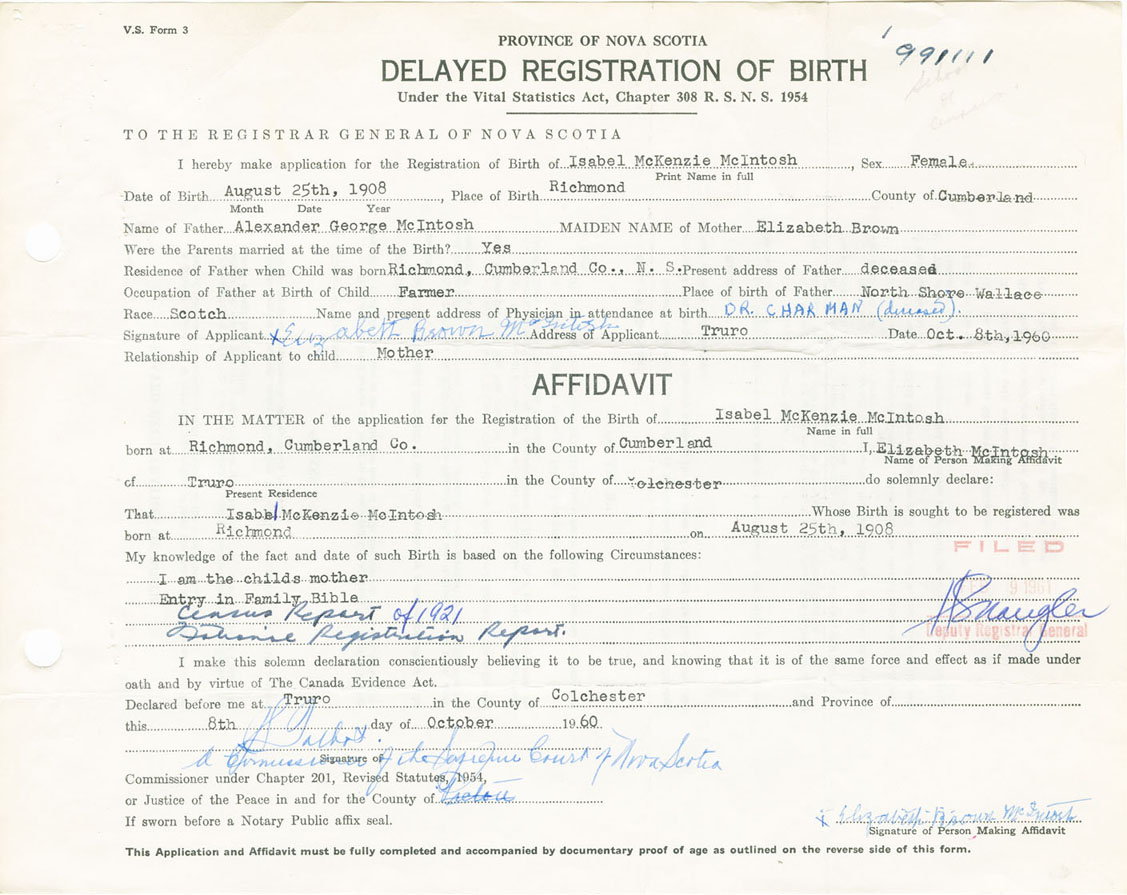 V.S. Form 3
PROVINCE OF NOVA SCOTIA
991111
DELAYED REGISTRATION OF BIRTH
Under the Vital Statistics Act, Chapter 308 R. S. N. S. 1954
TO THE REGISTRAR GENERAL OF NOVA SCOTIA
I hereby make application for the Registration of Birth of Isabel McKenzie McIntosh, Sex Female.
Print Name in full
Date of Birth August 25th, 1908, Place of Birth Richmond County of Cumberland
Month Date Year
Name of Father Alexander George McIntosh MAIDEN NAME of Mother Elizabeth Brown
Were the Parents married at the time of the Birth? Yes
Residence of Father when Child was born Richmond, Cumberland Co., N. S. Present address of Father deceased
Occupation of Father at Birth of Child Farmer Place of birth of Father North Shore Wallace
Race Scotch Name and present address of Physician in attendance at birth DR. CHARMAN (deceased).
Signature of Applicant x Elizabeth Brown McIntosh Address of Applicant Truro Date Oct. 8th, 1960
Relationship of Applicant to child Mother
AFFIDAVIT
IN THE MATTER of the application for the Registration of the Birth of Isabel McKenzie McIntosh
Name in full
born at Richmond, Cumberland Co. in the County of Cumberland I, Elizabeth McIntosh
Name of Person Making Affidavit
of Truro in the County of Colchester do solemnly declare:
Present Residence
That Isabel McKenzie McIntosh Whose Birth is sought to be registered was
born at Richmond on August 25th, 1908
My knowledge of the fact and date of such Birth is based on the following Circumstances:
FILED
I am the childs mother
9 1961
Entry in Family Bible
Census Report of 1921
Deputy Registrar General
Registration Report.
I make this solemn declaration conscientiously believing it to be true, and knowing that it is of the same force and effect as if made under
oath and by virtue of The Canada Evidence Act.
Declared before me at Truro in the County of Colchester and Province of
this 8th day of October 1960
Signature of
A Commissioner of the Supreme Court of Nova Scotia
Commissioner under Chapter 201, Revised Statutes, 1954,
or Justice of the Peace in and for the County of Pictou
If sworn before a Notary Public affix seal.
x Elizabeth Brown McIntosh
Signature of Person Making Affidavit
This Application and Affidavit must be fully completed and accompanied by documentary proof of age as outlined on the reverse side of this form.